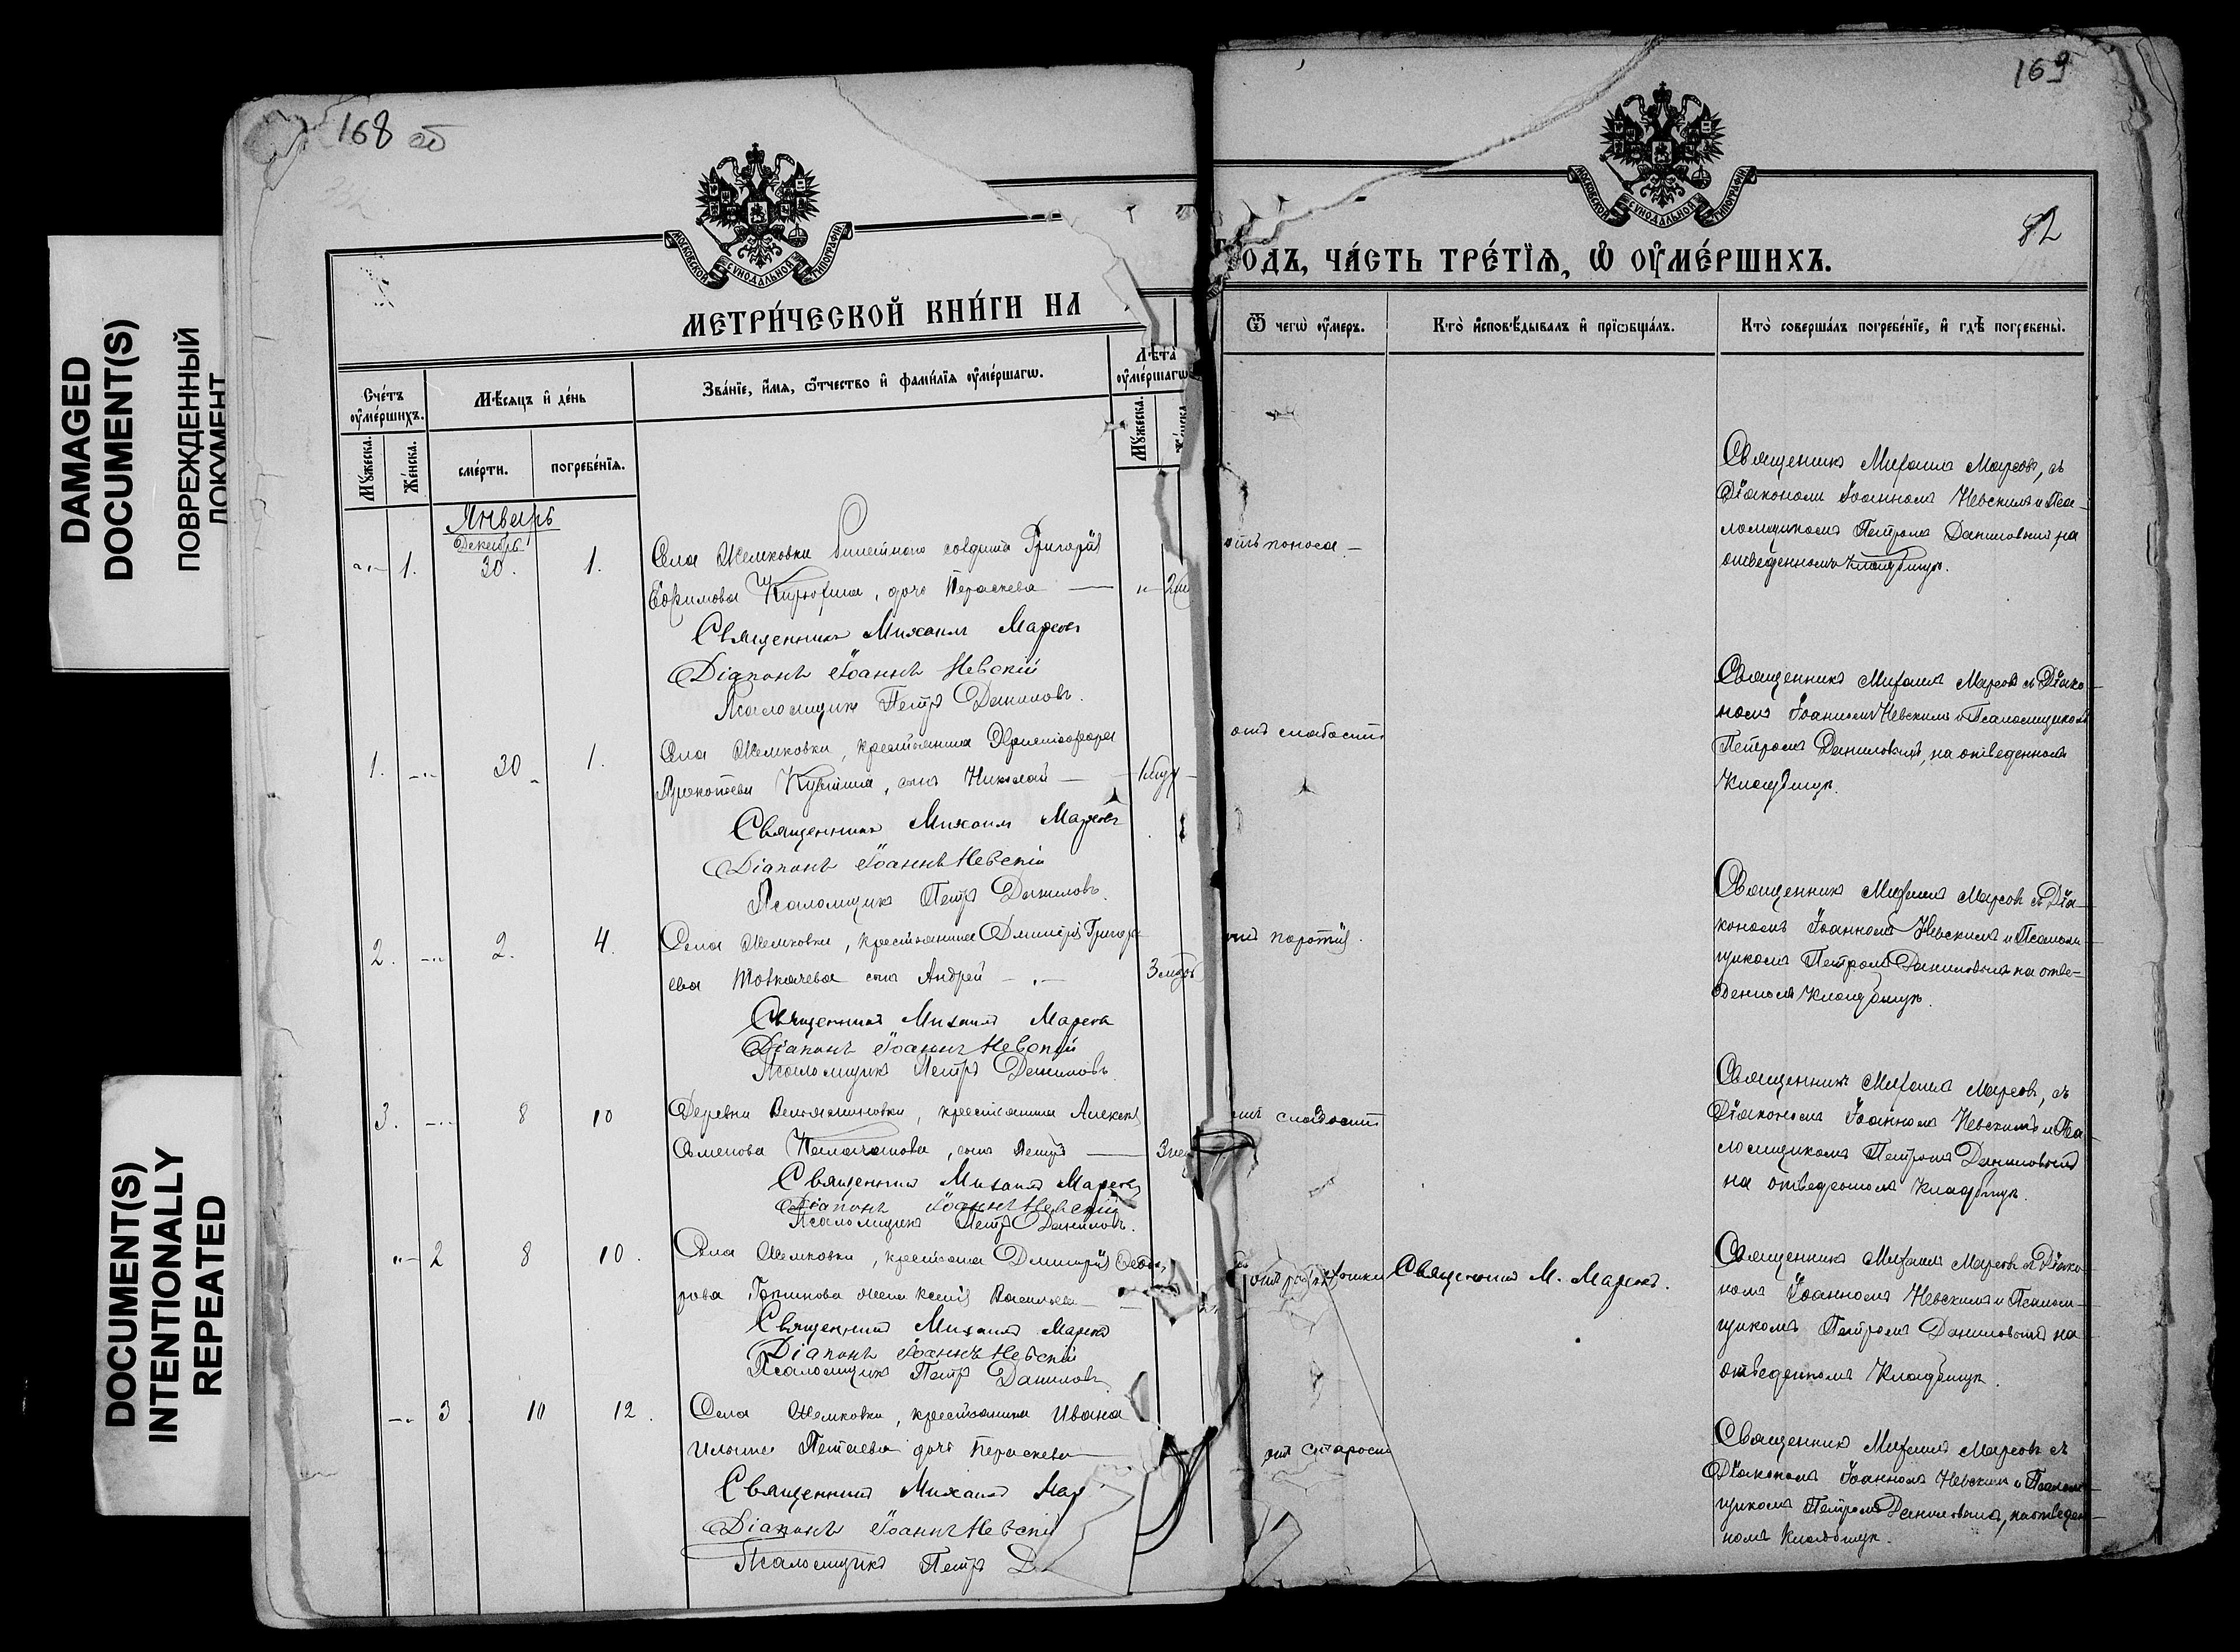 DAMAGED
DOCUMENT(S)
ПОВРЕЖДЕННЫЙ
ДОКУМЕНТ
DOCUMENT(S)
INTENTIONALLY
REPEATED
168 об
МОСКОВСКОЙ СѴНОДАЛЬНОЙ ТИПОГРАФІИ
МЕТРИ́ЧЕСКОЙ КНИ́ГИ НА
Сче́тъ ᲂу҆ме́ршихъ.
Мѣ́сяцъ и҆ де́нь
Зва́нїе, и҆́мѧ, ѻ҆́тчество и҆ фами́лїѧ ᲂу҆ме́ршагѡ.
Лѣ́та ᲂу҆ме́ршагѡ
Мꙋ́жеска.
Же́нска.
сме́рти.
погребе́нїѧ.
Мꙋ́жеска.
Январь
Декабрь
1. 30. 1.
Села Жемковки билетного солдата Григорія
Ефимова, дочь Параскева
Священникъ Михаилъ Марсовъ
Діаконъ Іоаннъ Невскій
Псаломщикъ Петръ Даниловъ.
1. 30 1.
Села Жемковки, крестьянина Христофора
Прокопьева, сынъ Николай
Священникъ Михаилъ Марсовъ
Діаконъ Іоаннъ Невскій
Псаломщикъ Петръ Даниловъ.
2. 2. 4.
Села Жемковки, крестьянина Димитрія Григорь
ева Толкачева сынъ Андрей
Священникъ Михаилъ Марсовъ
Діаконъ Іоаннъ Невскій
Псаломщикъ Петръ Даниловъ.
3. 8 10
Деревни, крестьянина Алексѣя
Семенова, сынъ Петръ
Священникъ Михаилъ Марсовъ
Діаконъ Іоаннъ Невскій
Псаломщикъ Петръ Даниловъ.
2 8 10.
Села Жемковки, крестьянина Димитрія Ѳедо
рова жена Ксенія Васильева
Священникъ Михаилъ Марсовъ
Діаконъ Іоаннъ Невскій
Псаломщикъ Петръ Даниловъ
3 10 12.
Села Жемковки, крестьянина Ивана
Ильина дочь Параскева
Священникъ Михаилъ Мар
Діаконъ Іоаннъ Невскій
Псаломщикъ Петръ Д
169
МОСКОВСКОЙ СѴНОДАЛЬНОЙ ТИПОГРАФІИ
82
ГОДЪ, ЧА́СТЬ ТРЕ́ТЇѦ, Ѡ҆ ОУ҆МЕ́РШИХЪ.
Ѿ чегѡ̀ ᲂу҆́меръ.
Кто̀ и҆сповѣ́дывалъ и҆ прїѡбща́лъ.
Кто̀ соверша́лъ погребе́нїе, и҆ гдѣ̀ погребены̀.
отъ поноса
Священникъ Михаилъ Марсовъ, съ
Діакономъ Іоанномъ Невскимъ и Пса-
ломщикомъ Петромъ Даниловымъ, на
отведенномъ кладбищѣ.
отъ слабости
Священникъ Михаилъ Марсовъ съ Діако-
номъ Іоанномъ Невскимъ и Псаломщикомъ
Петромъ Даниловымъ, на отведенномъ
кладбищѣ.
Священникъ Михаилъ Марсовъ съ Діа-
кономъ Іоанномъ Невскимъ и Псалом-
щикомъ Петромъ Даниловымъ на отве-
денномъ кладбищѣ.
слабости
Священникъ Михаилъ Марсовъ, съ
Діакономъ Іоанномъ Невскимъ и Пса-
ломщикомъ Петромъ Даниловымъ
на отведенномъ кладбищѣ.
Священникъ М. Марсовъ.
Священникъ Михаилъ Марсовъ съ Діако-
номъ Іоанномъ Невскимъ и Псалом-
щикомъ Петромъ Даниловымъ на
отведенномъ кладбищѣ.
отъ старости
Священникъ Михаилъ Марсовъ съ
Діакономъ Іоанномъ Невскимъ и Псалом-
щикомъ Петромъ Даниловымъ, на отведен-
номъ кладбищѣ.